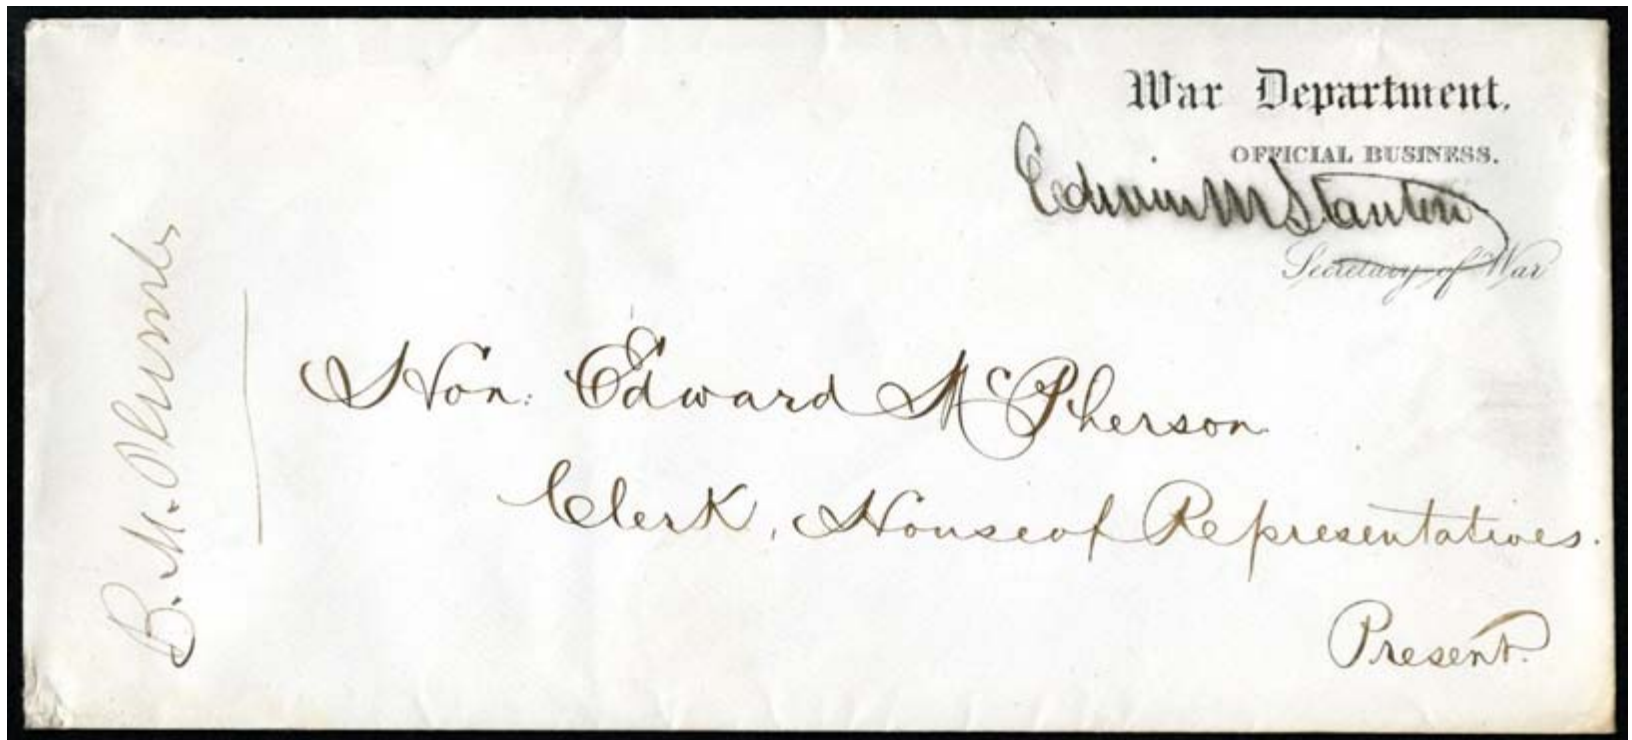 War Department.
OFFICIAL BUSINESS.
Edwin M Stanton
Secretary of War
Hon: Edward McPherson
Clerk, House of Representatives.
Present.
B. M.